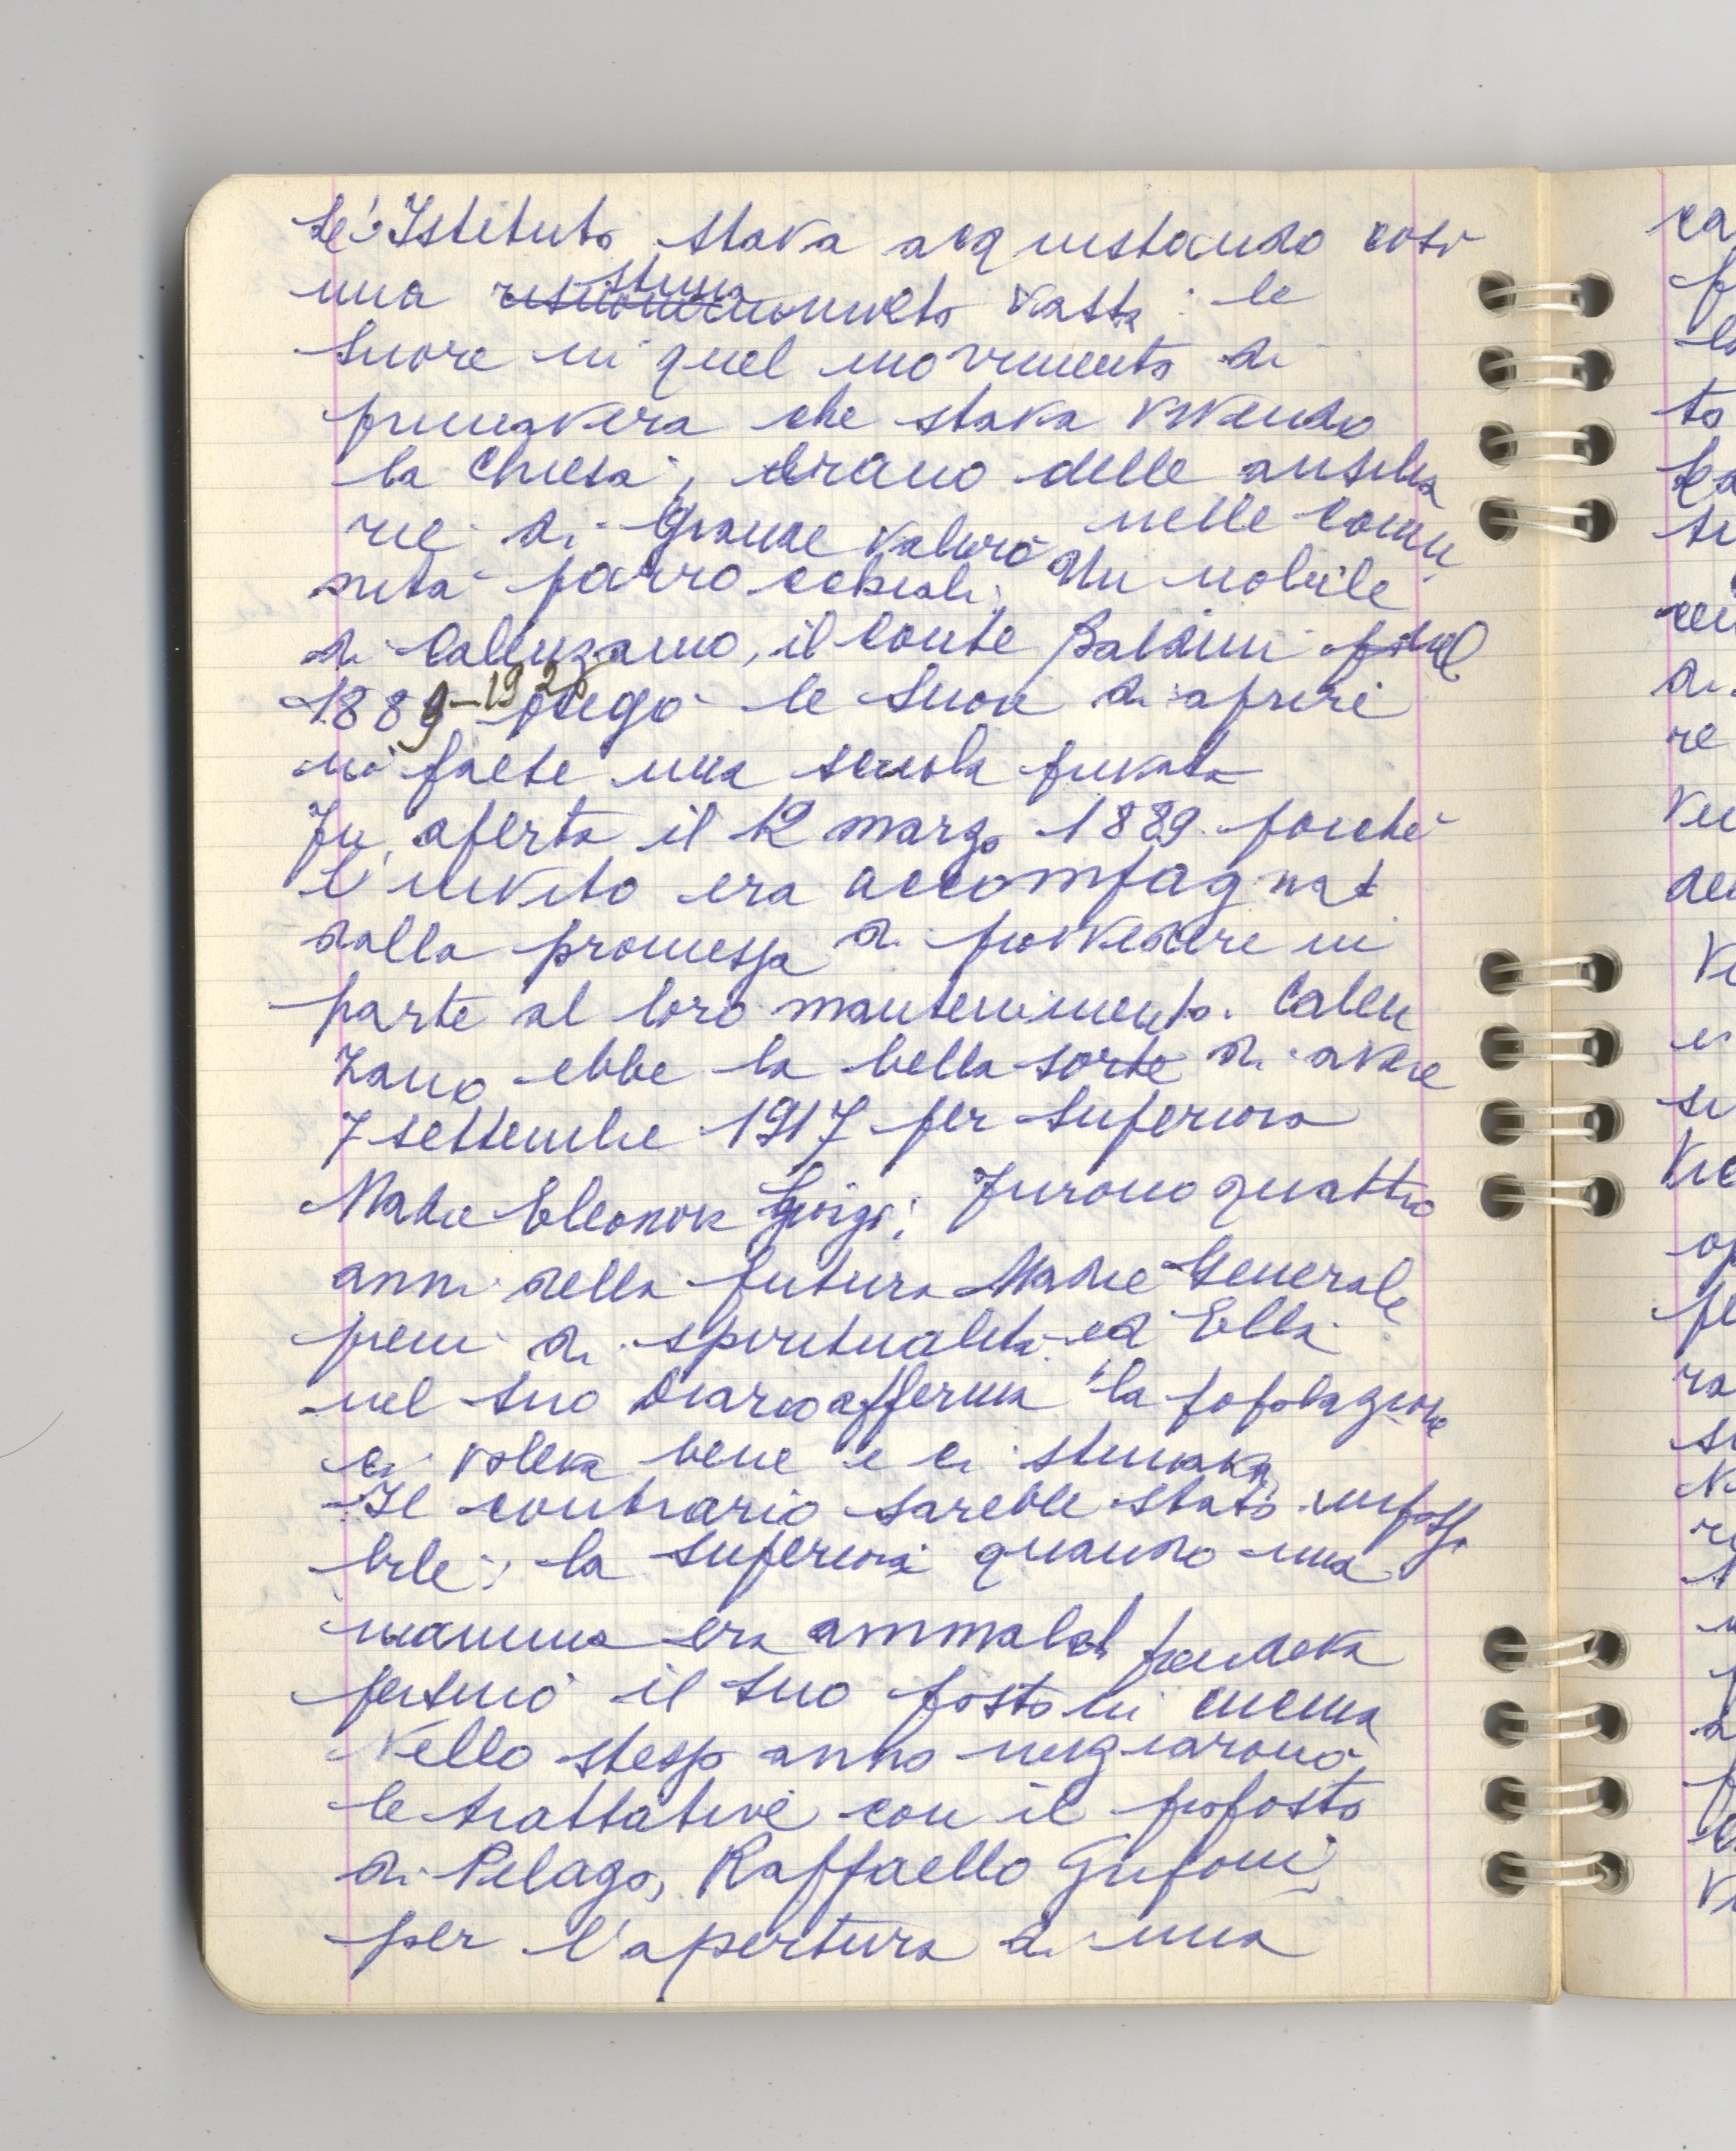 L'Istituto stava acquistando così
una stima molto vasta: le
Suore in quel movimento di
primavera che stava vivendo
la Chiesa, erano delle ausilia
rie di grande valore nelle comu
nità parrocchiali. Un nobile
di Callenzano, il Conte Baldini nel
1889-1926 pregò le Suore di aprire
una scuola privata
Fu aperta il 12 marzo 1889 poiché
l'invito era accompagnat
dalla promessa di provvedere in
parte al loro mantenimento. Callen
zano ebbe la bella sorte di avere
7 settembre 1917 per Superiora
Madre Eleonora Giorgi; Furono quattro
anni della futura Madre Generale
pieni di spiritualità ed Ella
nel suo Diario afferma "la popolazione
ci voleva bene e ci stimava
Il contrario sarebbe stato impossi
bile; la superiora quando una
mamma era ammalat prendeva
persino il suo posto in cucina
Nello stesso anno iniziarono
le trattative con il proposto
di Pelago, Raffaello Grifoni,
per l'apertura di una
ca
to
di
re